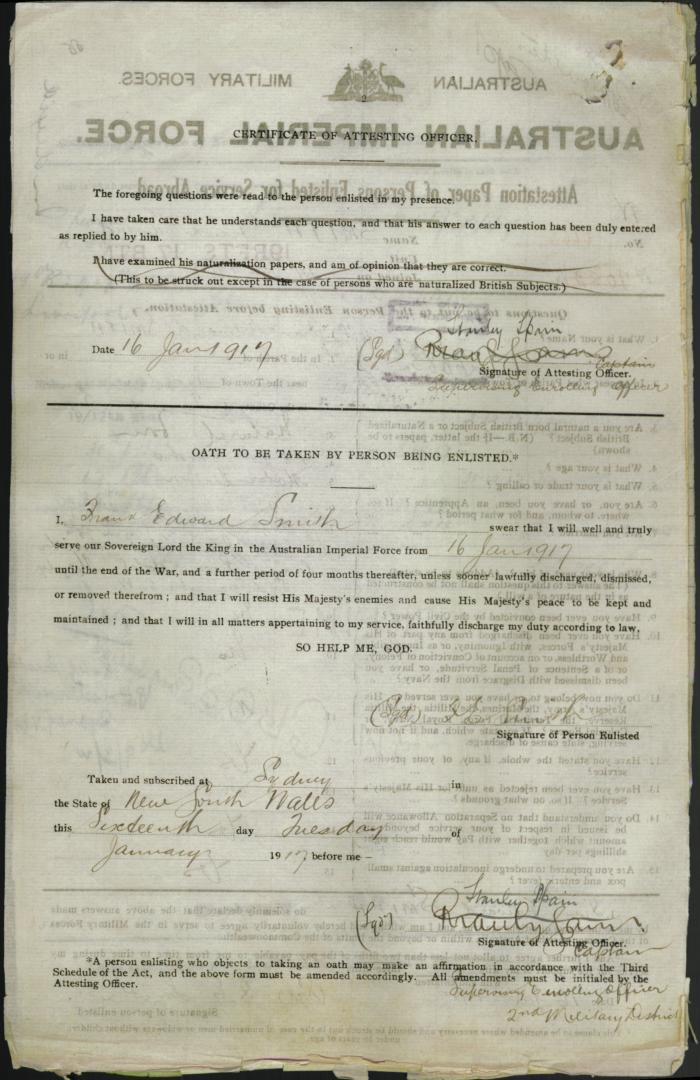 2
CERTIFICATE OF ATTESTING OFFICER.
The foregoing questions were read to the person enlisted in my presence.
I have taken care that he understands each question, and that his answer to each question has been duly entered
as replied to by him.
I have examined his naturalization papers, and am of opinion that they are correct.
(This to be struck out except in the case of persons who are naturalized British Subjects.)
Stanley Spain
Date 16 Jan 1917 (Sgd)
Captain
Signature of Attesting Officer.
Supervising Enrolling Officer
OATH TO BE TAKEN BY PERSON BEING ENLISTED.*
I, Frank Edward Smith swear that I will well and truly
serve our Sovereign Lord the King in the Australian Imperial Force from 16 Jan 1917
until the end of the War, and a further period of four months thereafter, unless sooner lawfully discharged, dismissed,
or removed therefrom ; and that I will resist His Majesty's enemies and cause His Majesty's peace to be kept and
maintained ; and that I will in all matters appertaining to my service, faithfully discharge my duty according to law.
SO HELP ME, GOD.
(Sgd)
Signature of Person Enlisted
Taken and subscribed at Sydney in
the State of New South Wales
this Sixteenth day Tuesday of
January 1917 before me —
Stanley Spain
(Sgd)
Signature of Attesting Officer.
Captain
*A person enlisting who objects to taking an oath may make an affirmation in accordance with the Third
Schedule of the Act, and the above form must be amended accordingly. All amendments must be initialed by the
Attesting Officer.
Supervising Enrolling Officer
2nd Military District